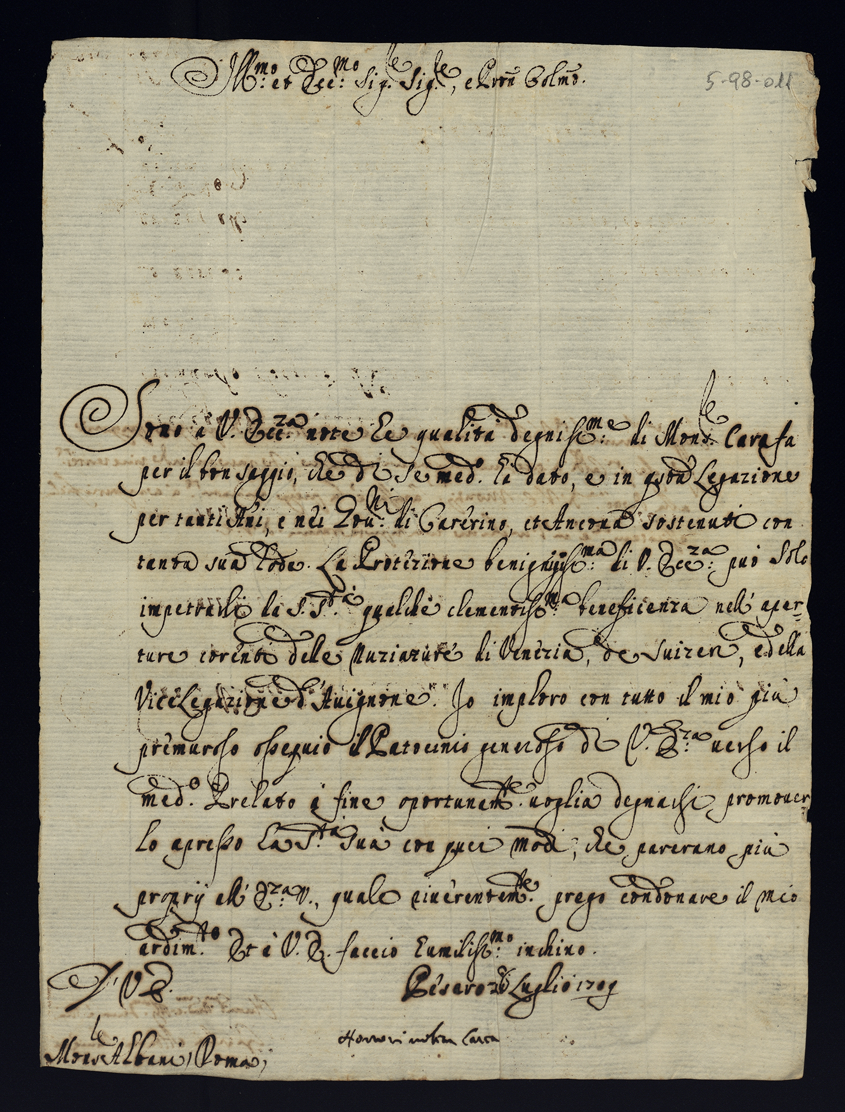 Ill.mo et Ecc.mo Sig.re Sig.re, e Pron Colmo.
5-98-011
Sono a V. Ecc.za note le qualità degnis.me di Mons.re Carafa
per il bon saggio, che di se med.o hà dato, e in qsta Legazione
per tanti Ani, e nei Gou.ni di Camerino, et Ancona sostenuti con
tanta sua lode. La Protezione benigniss.ma di V. Ecc.za può solo
impetrarli da S. S.tà qualche clementiss.ma beneficenza nell' aper-
ture correnti delle Nunziature di Venezia, de Suizeri, e della
ViceLegazione d'Auignone. Io imploro con tutto il mio più
premuroso ossequio il Patocinio generoso di V. E.za uerso il
med.o Prelato à fine oportunam.te uoglia degnarsi promouer
lo apresso La S.tà Sua con quei modi, che parerano più
proprij all' E.za V., quale riuerentem.te prego condonare il mio
ardim.to Et à V. E. faccio humiliss.mo inchino.
D' V. E.
Pesaro 26 Luglio 1709
Mons.re Albani, Roma,